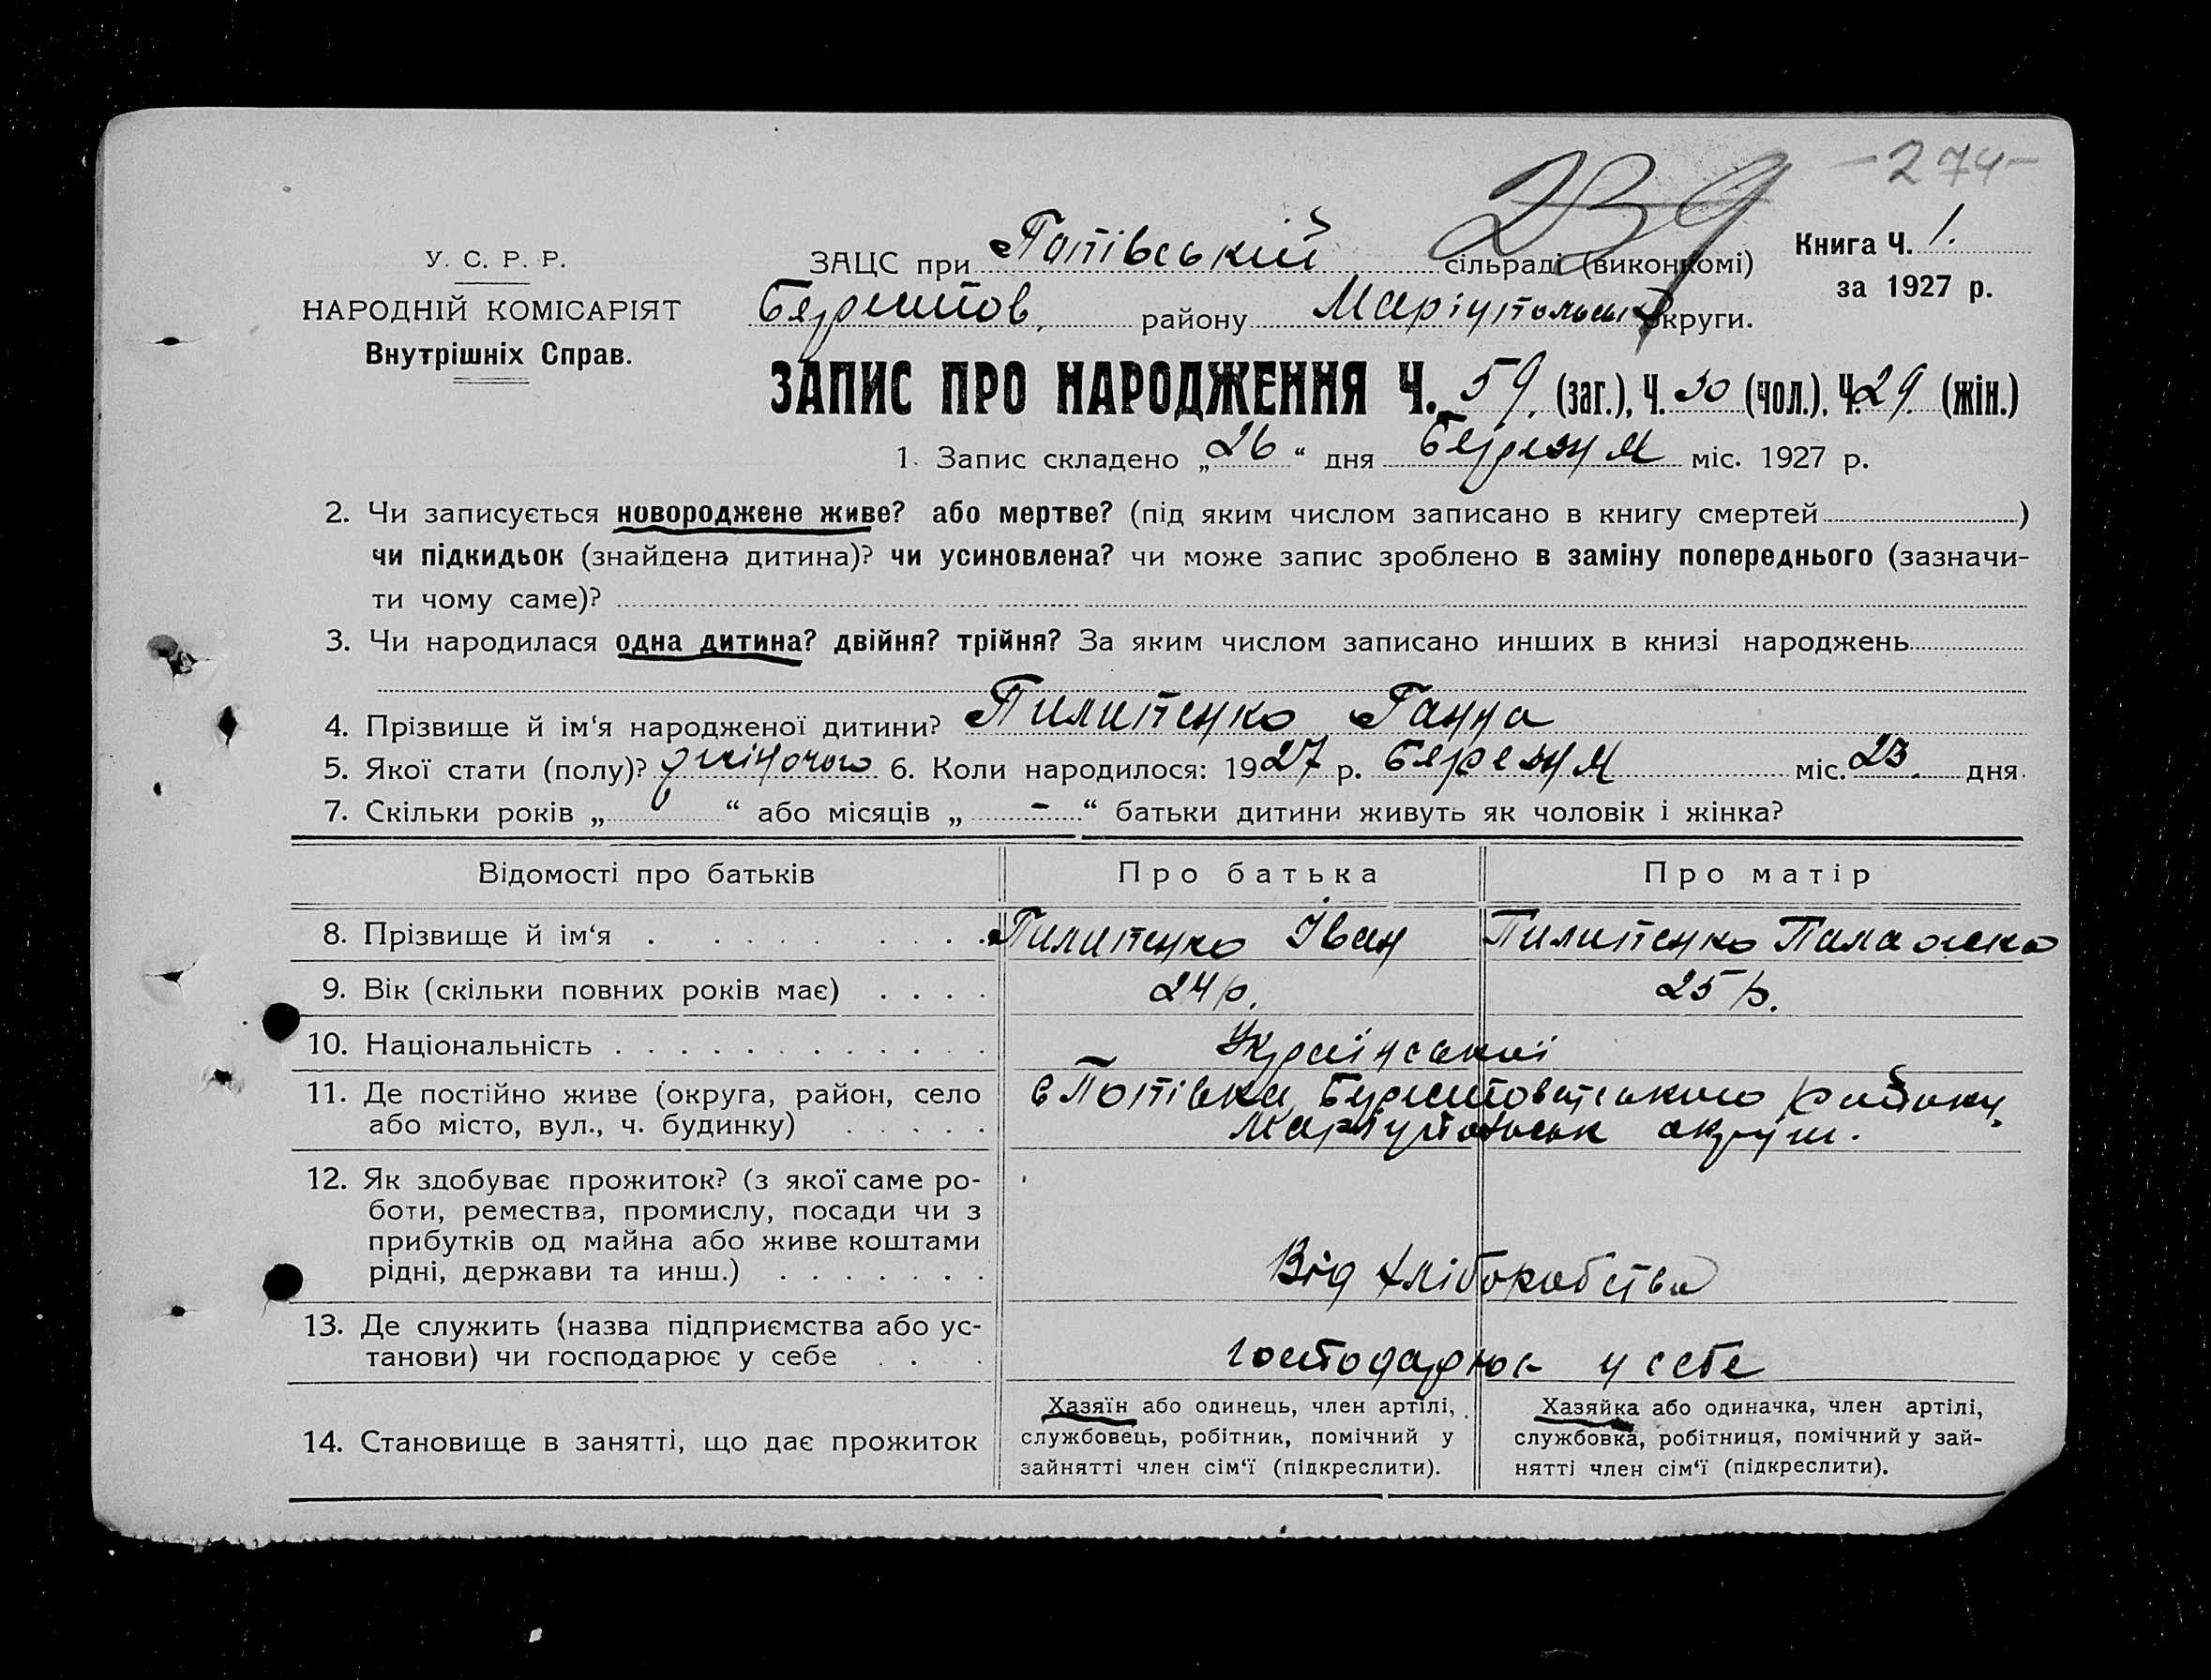 -274-
239
У. С. Р. Р.
НАРОДНІЙ КОМІСАРІЯТ
Внутрішніх Справ.
ЗАЦС при Попівській сільраді (виконкомі)
района Мариупольськ округи.
Книга Ч. 1.
за 1927 р.
ЗАПИС ПРО НАРОДЖЕННЯ Ч. 59. (заг.), Ч. 30 (чол.), Ч. 29. (жін.)
1. Запис складено „26“ дня Березня міс. 1927 р.
2. Чи записується новороджене живе? або мертве? (під яким числом записано в книгу смертей )
чи підкидьок (знайдена дитина)? чи усиновлена? чи може запис зроблено в заміну попереднього (зазначи-
ти чому саме)?
3. Чи народилася одна дитина? двійня? трійня? За яким числом записано инших в книзі народжень
4. Прізвище й ім‘я народженої дитини? Пилипенко Ганна
5. Якої стати (полу)? жіночого 6. Коли народилося: 1927 р. Березня міс. 23. дня
7. Скільки років „ “ або місяців „ - “ батьки дитини живуть як чоловік і жінка?
Відомості про батьків Про батька Про матір
8. Прізвище й ім‘я Пилипенко Іван Пилипенко Палажка
9. Вік (скільки повних років має) 24 р. 25 р.
10. Національність Української
11. Де постійно живе (округа, район, село в Попівка, району
або місто, вул., ч. будинку) округи.
12. Як здобуває прожиток? (з якої саме ро-
боти, ремества, промислу, посади чи з
прибутків од майна або живе коштами
рідні, держави та инш.) Від хліборобства
13. Де служить (назва підприємства або ус-
танови) чи господарює у себе господарює у себе
14. Становище в занятті, що дає прожиток
Хазяїн або одинець, член артілі,
службовець, робітник, помічний у
зайнятті член сім‘ї (підкреслити).
Хазяйка або одиначка, член артілі,
службовка, робітниця, помічний у зай-
нятті член сім‘ї (підкреслити).